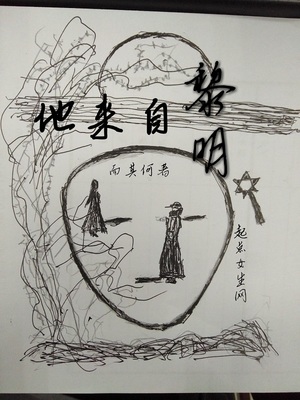 她来自黎明
而其何若
起点女生网